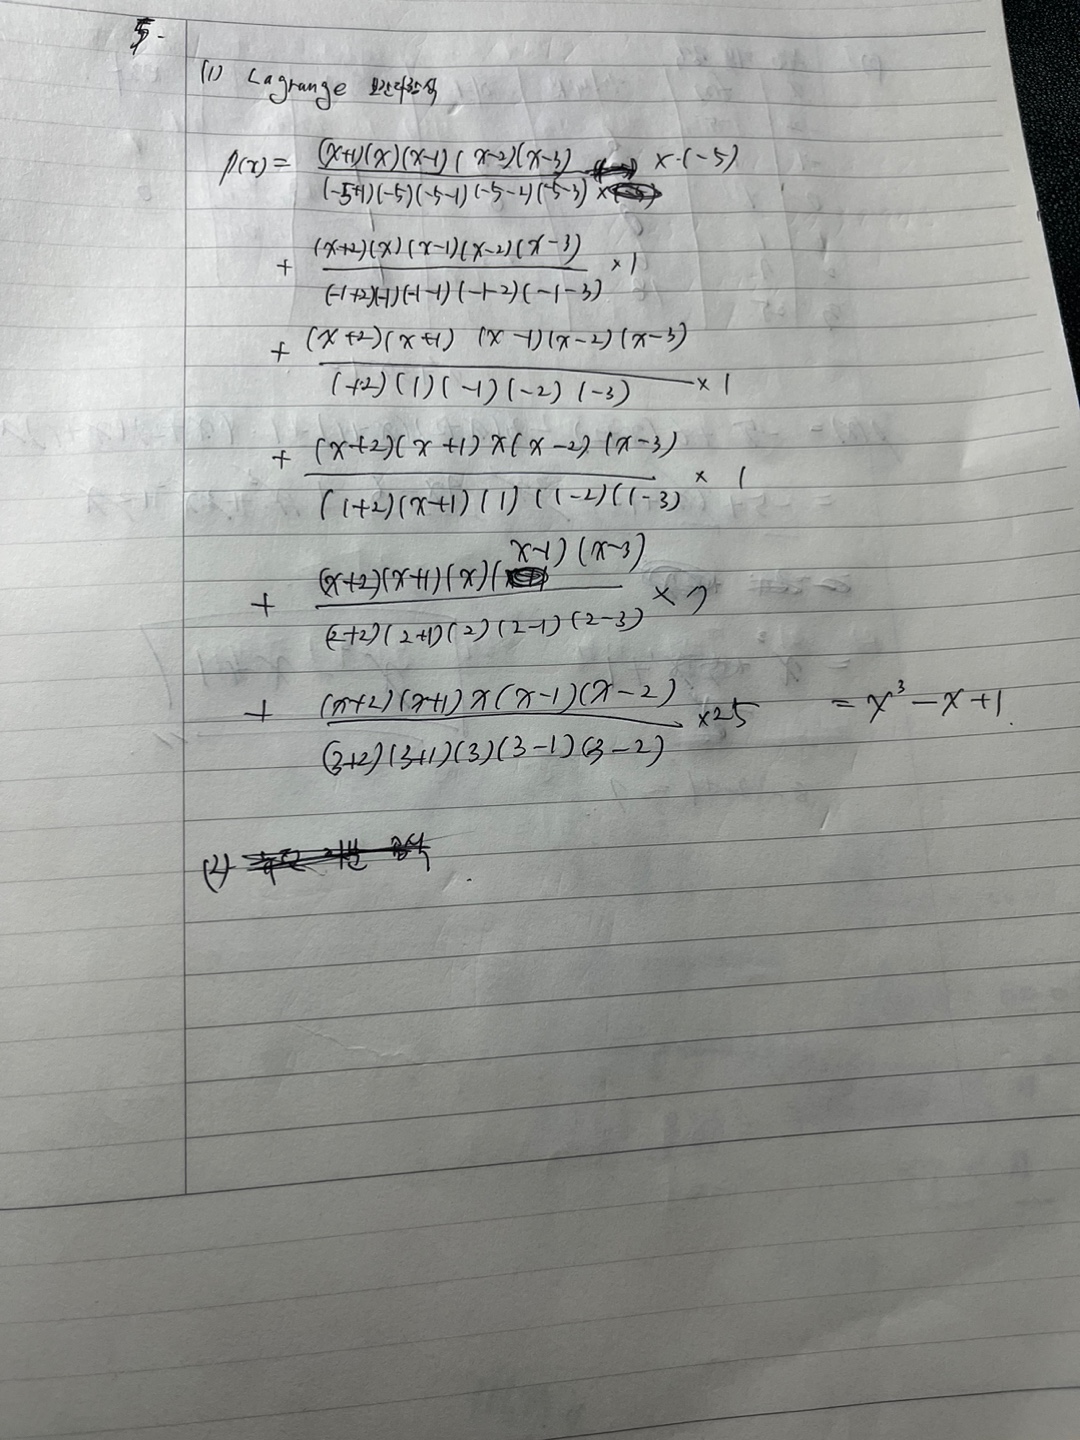 5.
(1) Lagrange 보간다항식
p(x) = (x+1)(x)(x-1)(x-2)(x-3) × (-5)
(-5+1)(-5)(-5-1)(-5-2)(-5-3) ×
+ (x+2)(x)(x-1)(x-2)(x-3) × 1
(-1+2)(-1)(-1-1)(-1-2)(-1-3)
+ (x+2)(x+1) (x-1)(x-2)(x-3)
(+2)(1)(-1)(-2)(-3) × 1
+ (x+2)(x+1)x(x-2)(x-3) × 1
(1+2)(x+1)(1)(1-2)(1-3)
+ (x+2)(x+1)(x)(x-1)(x-3) × 7
(2+2)(2+1)(2)(2-1)(2-3)
+ (x+2)(x+1)x(x-1)(x-2) ×25 = x³-x+1.
(3+2)(3+1)(3)(3-1)(3-2)
(2)